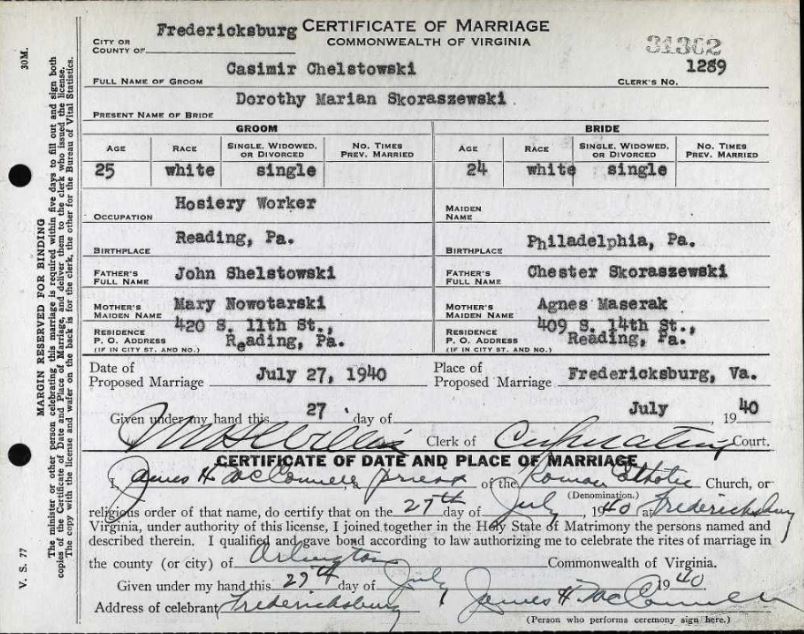 Fredericksburg CERTIFICATE OF MARRIAGE
CITY OR
COUNTY OF
COMMONWEALTH OF VIRGINIA
31362
Casimir Chelstowski 1289
FULL NAME OF GROOM CLERK'S NO.
Dorothy Marian Skoraszewski
PRESENT NAME OF BRIDE
GROOM BRIDE
AGE RACE SINGLE, WIDOWED, OR DIVORCED NO. TIMES PREV. MARRIED AGE RACE SINGLE, WIDOWED, OR DIVORCED NO. TIMES PREV. MARRIED
25 white single 24 white single
OCCUPATION Hosiery Worker MAIDEN NAME
BIRTHPLACE Reading, Pa. BIRTHPLACE Philadelphia, Pa.
FATHER'S FULL NAME John Shelstowski FATHER'S FULL NAME Chester Skoraszewski
MOTHER'S MAIDEN NAME Mary Nowotarski MOTHER'S MAIDEN NAME Agnes Maserak
RESIDENCE 420 S. 11th St., RESIDENCE 409 S. 14th St.,
P. O. ADDRESS Reading, Pa. P. O. ADDRESS Reading, Pa.
(IF IN CITY ST. AND NO.) (IF IN CITY ST. AND NO.)
Date of Proposed Marriage July 27, 1940 Place of Proposed Marriage Fredericksburg, Va.
Given under my hand this 27 day of July 1940
Willis Clerk of Corporation Court.
CERTIFICATE OF DATE AND PLACE OF MARRIAGE
I, James H McConnell, a priest of the Roman Catholic Church, or
(Denomination.)
religious order of that name, do certify that on the 27th day of July, 1940 at Fredericksburg
Virginia, under authority of this license, I joined together in the Holy State of Matrimony the persons named and
described therein. I qualified and gave bond according to law authorizing me to celebrate the rites of marriage in
the county (or city) of Arlington Commonwealth of Virginia.
Given under my hand this 29th day of July 1940
Address of celebrant Fredericksburg, James H McConnell
(Person who performs ceremony sign here.)
V. S. 77 30M.
MARGIN RESERVED FOR BINDING
The minister or other person celebrating this marriage is required within five days to fill out and sign both
copies of the Certificate of Date and Place of Marriage, and deliver them to the clerk who issued the license.
The copy with the license and wafer on the back is for the clerk, the other for the Bureau of Vital Statistics.